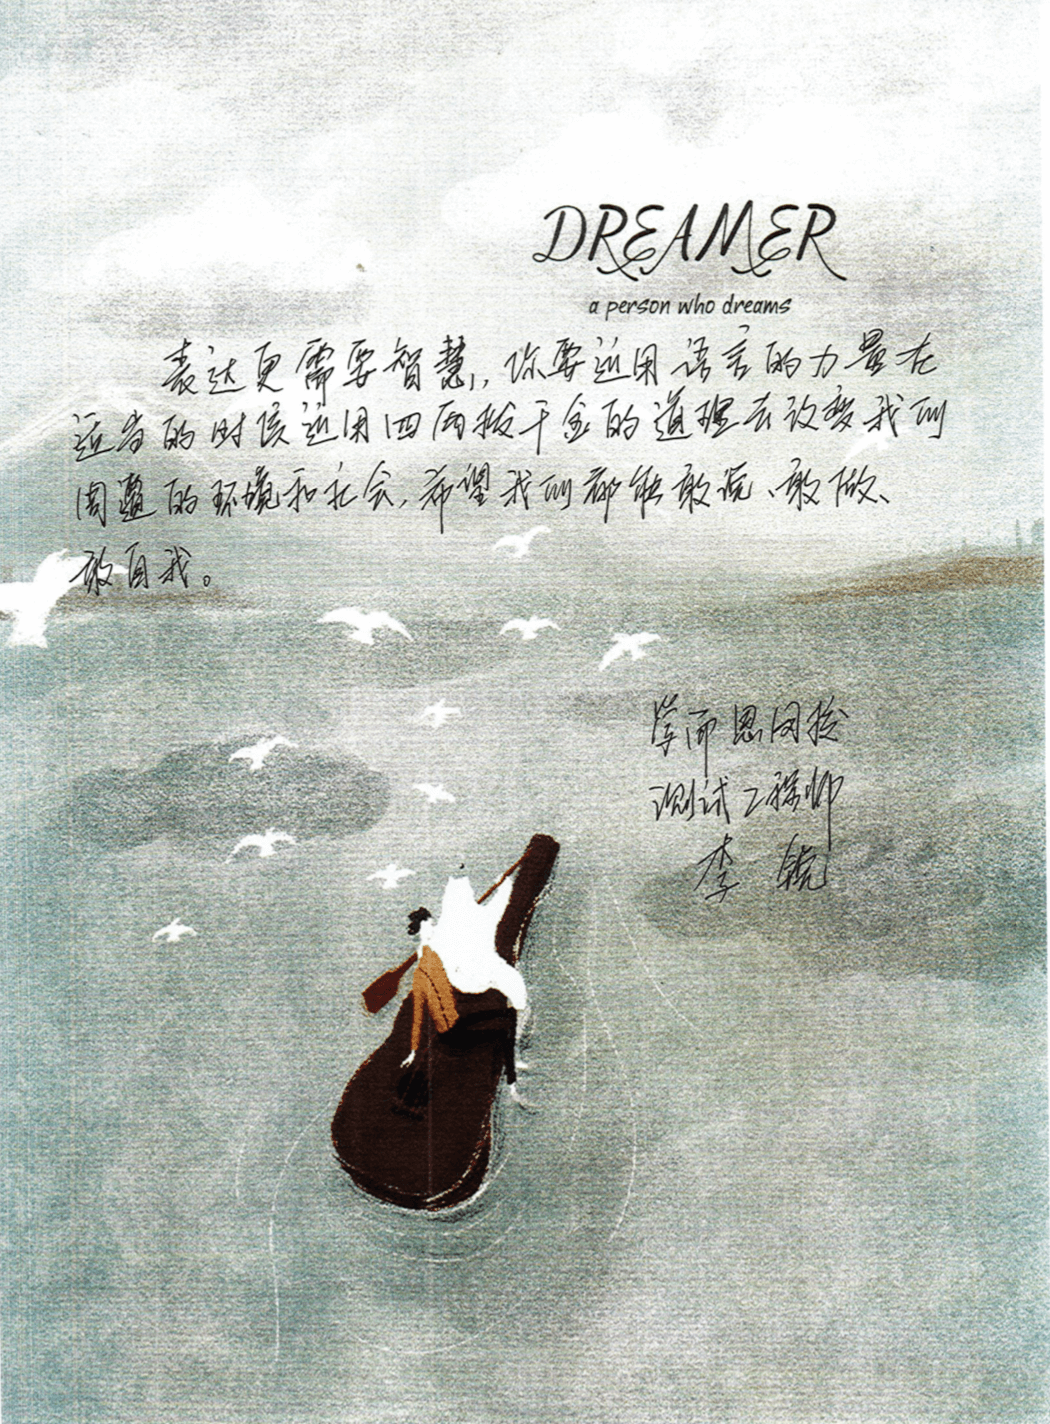 DREAMER
a person who dreams
表达更需要智慧,你要运用语言的力量在
适当的时候运用四两拨千金的道理去改变我们
周边的环境和社会,希望我们都能敢说、敢做、
敢自我。
学而思网校
测试工程师
李